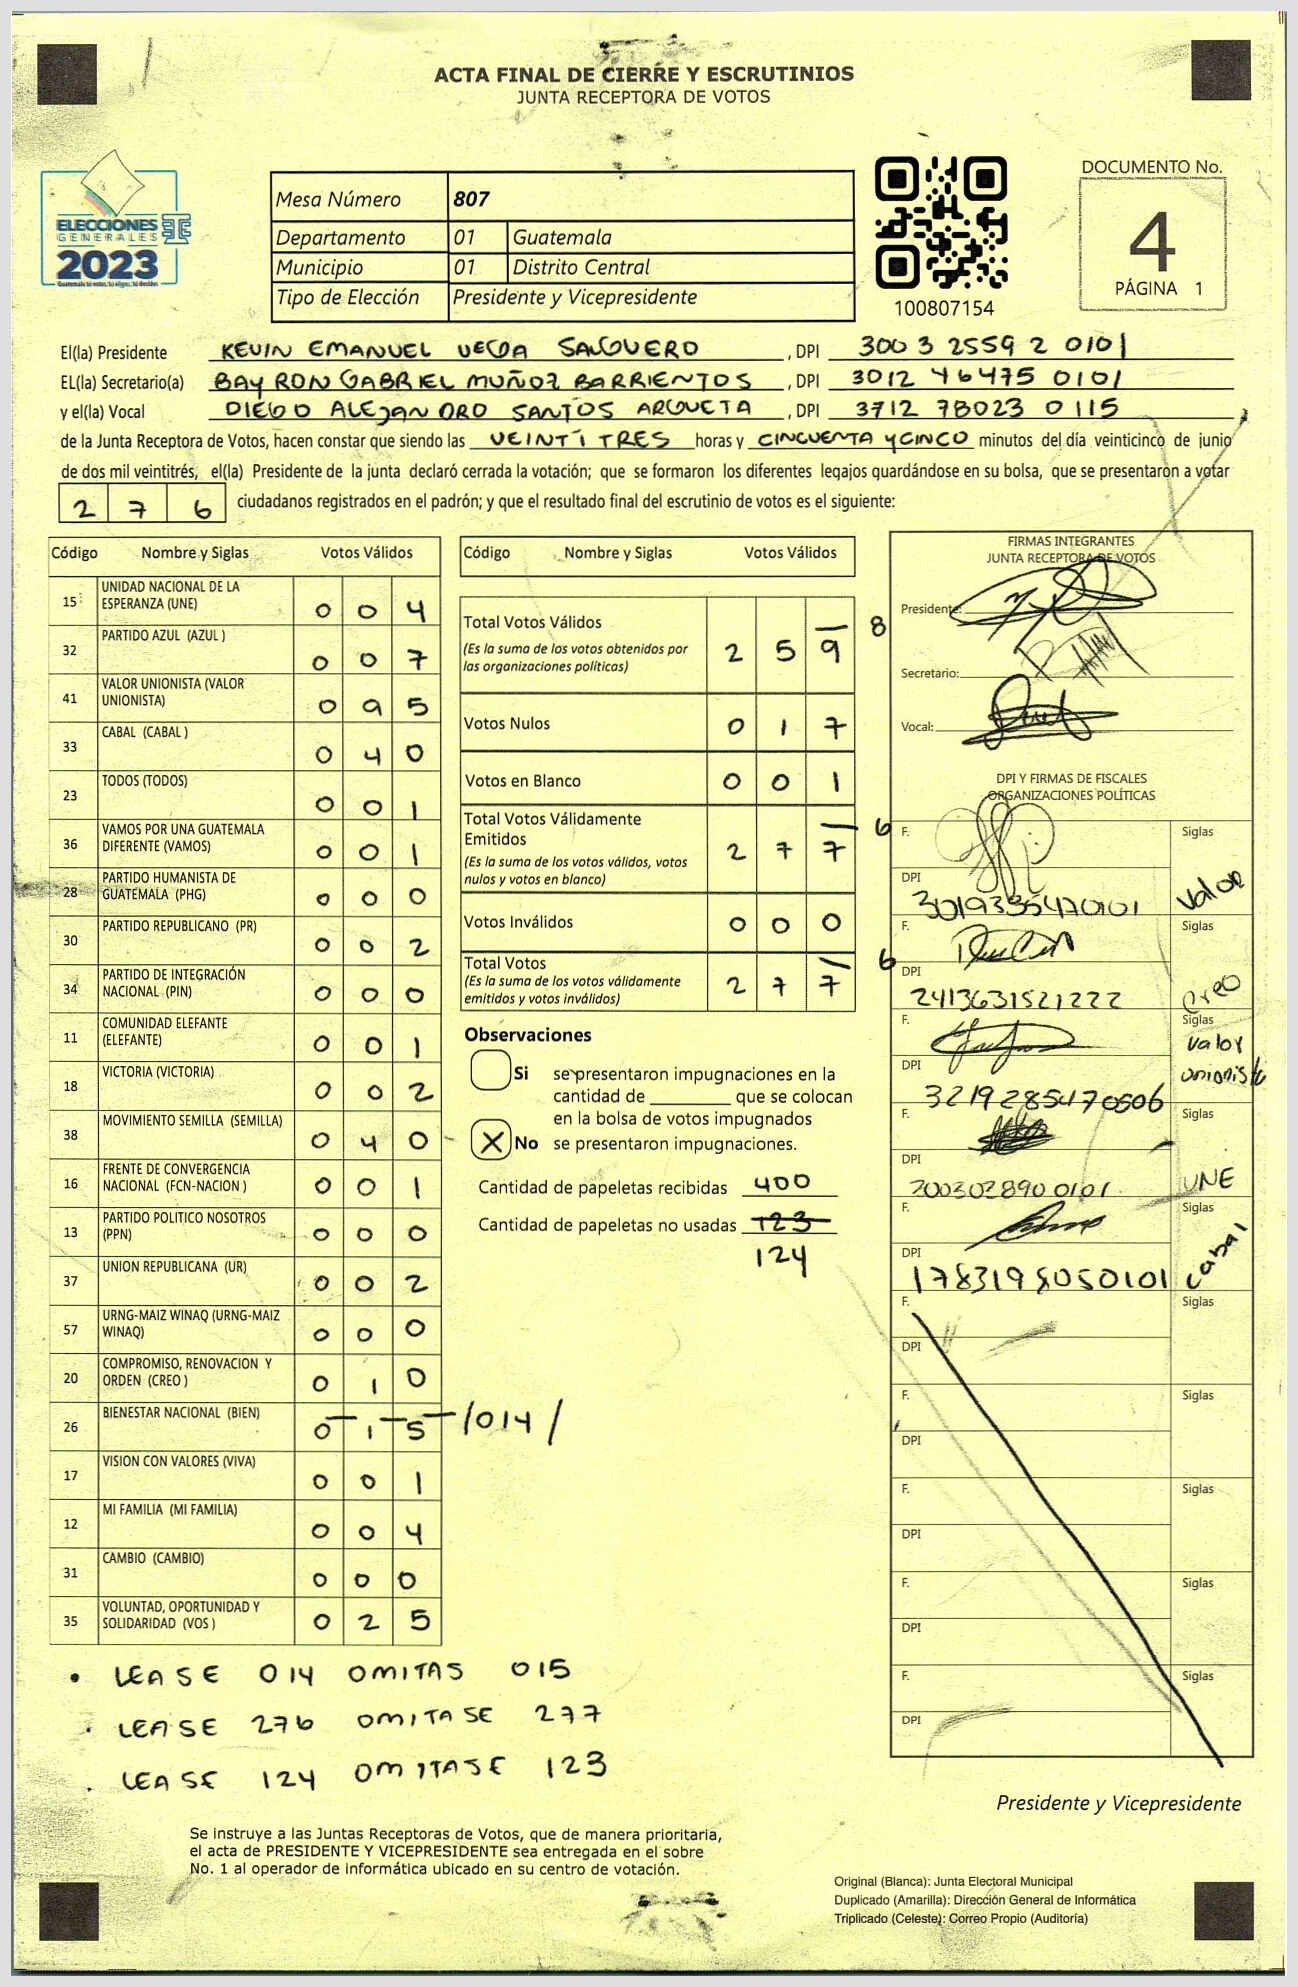 ACTA FINAL DE CIERRE Y ESCRUTINIOS
JUNTA RECEPTORA DE VOTOS
ELECCIONES
GENERALES
2023
Mesa Número 807
Departamento 01 Guatemala
Municipio 01 Distrito Central
Tipo de Elección Presidente y Vicepresidente
100807154
DOCUMENTO No.
4
PÁGINA 1
El(la) Presidente KEVIN EMANUEL SALGUERO , DPI 3003 2559 2 0101
EL(la) Secretario(a) BAYRON GABRIEL MUÑOZ BARRIENTOS , DPI 3012 46475 0101
y el(la) Vocal DIEGO ALEJANDRO SANTOS ARGUETA , DPI 3712 78023 0115
de la Junta Receptora de Votos, hacen constar que siendo las VEINTI TRES horas y CINCUENTA Y CINCO minutos del día veinticinco de junio
de dos mil veintitrés, el(la) Presidente de la junta declaró cerrada la votación; que se formaron los diferentes legajos guardándose en su bolsa, que se presentaron a votar
2 7 6 ciudadanos registrados en el padrón; y que el resultado final del escrutinio de votos es el siguiente:
Código Nombre y Siglas Votos Válidos
15 UNIDAD NACIONAL DE LA
ESPERANZA (UNE) 0 0 4
32 PARTIDO AZUL (AZUL ) 0 0 7
41 VALOR UNIONISTA (VALOR
UNIONISTA) 0 9 5
33 CABAL (CABAL ) 0 4 0
23 TODOS (TODOS) 0 0 1
36 VAMOS POR UNA GUATEMALA
DIFERENTE (VAMOS) 0 0 1
28 PARTIDO HUMANISTA DE
GUATEMALA (PHG) 0 0 0
30 PARTIDO REPUBLICANO (PR) 0 0 2
34 PARTIDO DE INTEGRACIÓN
NACIONAL (PIN) 0 0 0
11 COMUNIDAD ELEFANTE
(ELEFANTE) 0 0 1
18 VICTORIA (VICTORIA) 0 0 2
38 MOVIMIENTO SEMILLA (SEMILLA) 0 4 0
16 FRENTE DE CONVERGENCIA
NACIONAL (FCN-NACION ) 0 0 1
13 PARTIDO POLITICO NOSOTROS
(PPN) 0 0 0
37 UNION REPUBLICANA (UR) 0 0 2
57 URNG-MAIZ WINAQ (URNG-MAIZ
WINAQ) 0 0 0
20 COMPROMISO, RENOVACION Y
ORDEN (CREO ) 0 1 0
26 BIENESTAR NACIONAL (BIEN) 0 1 5 /014/
17 VISION CON VALORES (VIVA) 0 0 1
12 MI FAMILIA (MI FAMILIA) 0 0 4
31 CAMBIO (CAMBIO) 0 0 0
35 VOLUNTAD, OPORTUNIDAD Y
SOLIDARIDAD (VOS ) 0 2 5
• LEASE 014 OMITAS 015
. LEASE 276 OMITASE 277
. LEASE 124 OMITASE 123
Código Nombre y Siglas Votos Válidos
Total Votos Válidos
(Es la suma de los votos obtenidos por
las organizaciones políticas) 2 5 9 8
Votos Nulos 0 1 7
Votos en Blanco 0 0 1
Total Votos Válidamente
Emitidos
(Es la suma de los votos válidos, votos
nulos y votos en blanco) 2 7 7 6
Votos Inválidos 0 0 0
Total Votos
(Es la suma de los votos válidamente
emitidos y votos inválidos) 2 7 7 6
Observaciones
Si se presentaron impugnaciones en la
cantidad de ________ que se colocan
en la bolsa de votos impugnados
X No se presentaron impugnaciones.
Cantidad de papeletas recibidas 400
Cantidad de papeletas no usadas 123
124
FIRMAS INTEGRANTES
JUNTA RECEPTORA DE VOTOS
Presidente:
Secretario:
Vocal:
DPI Y FIRMAS DE FISCALES
ORGANIZACIONES POLÍTICAS
F. Siglas
DPI 3019335470101 Valor
F. Siglas
DPI 2413631521222 Creo
F. Siglas
DPI 3219285470506 Valor
unionista
F. Siglas
DPI 2003028900101 UNE
F. Siglas
DPI 1783198050101 Cabal
F. Siglas
DPI
F. Siglas
DPI
F. Siglas
DPI
F. Siglas
DPI
F. Siglas
DPI
Presidente y Vicepresidente
Se instruye a las Juntas Receptoras de Votos, que de manera prioritaria,
el acta de PRESIDENTE Y VICEPRESIDENTE sea entregada en el sobre
No. 1 al operador de informática ubicado en su centro de votación.
Original (Blanca): Junta Electoral Municipal
Duplicado (Amarilla): Dirección General de Informática
Triplicado (Celeste): Correo Propio (Auditoría)